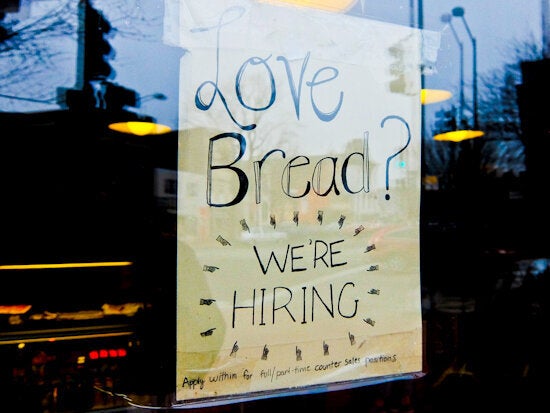 Love
Bread?
WE'RE
HIRING
Apply within for full/part-time counter sales positions